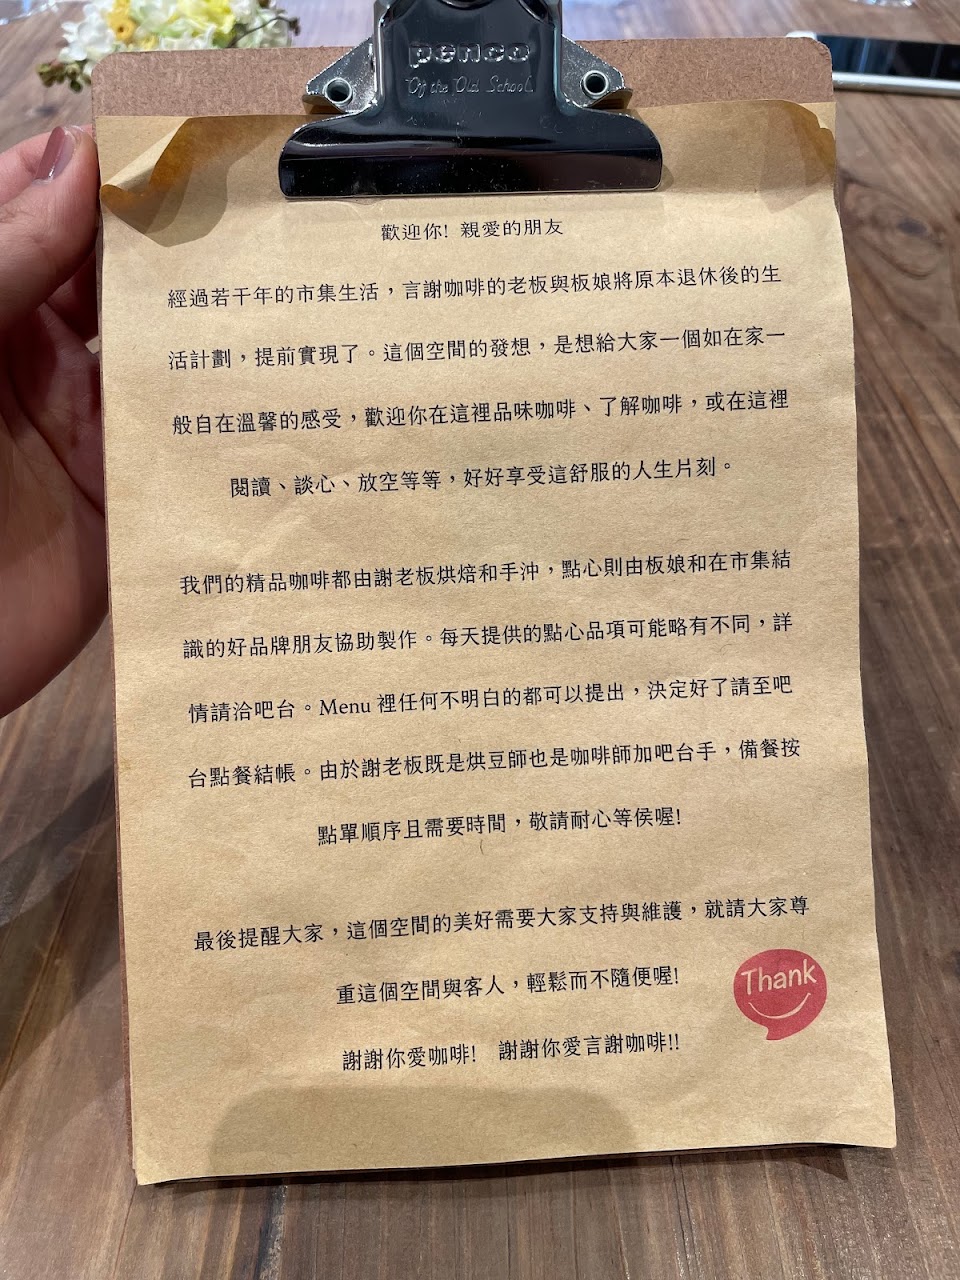 penco
Of the Old School.
歡迎你! 親愛的朋友
經過若干年的市集生活，言謝咖啡的老板與板娘將原本退休後的生
活計劃，提前實現了。這個空間的發想，是想給大家一個如在家一
般自在溫馨的感受，歡迎你在這裡品味咖啡、了解咖啡，或在這裡
閱讀、談心、放空等等，好好享受這舒服的人生片刻。
我們的精品咖啡都由謝老板烘焙和手沖，點心則由板娘和在市集結
識的好品牌朋友協助製作。每天提供的點心品項可能略有不同，詳
情請洽吧台。Menu 裡任何不明白的都可以提出，決定好了請至吧
台點餐結帳。由於謝老板既是烘豆師也是咖啡師加吧台手，備餐按
點單順序且需要時間，敬請耐心等侯喔!
最後提醒大家，這個空間的美好需要大家支持與維護，就請大家尊
重這個空間與客人，輕鬆而不隨便喔!
Thank
謝謝你愛咖啡!　謝謝你愛言謝咖啡!!